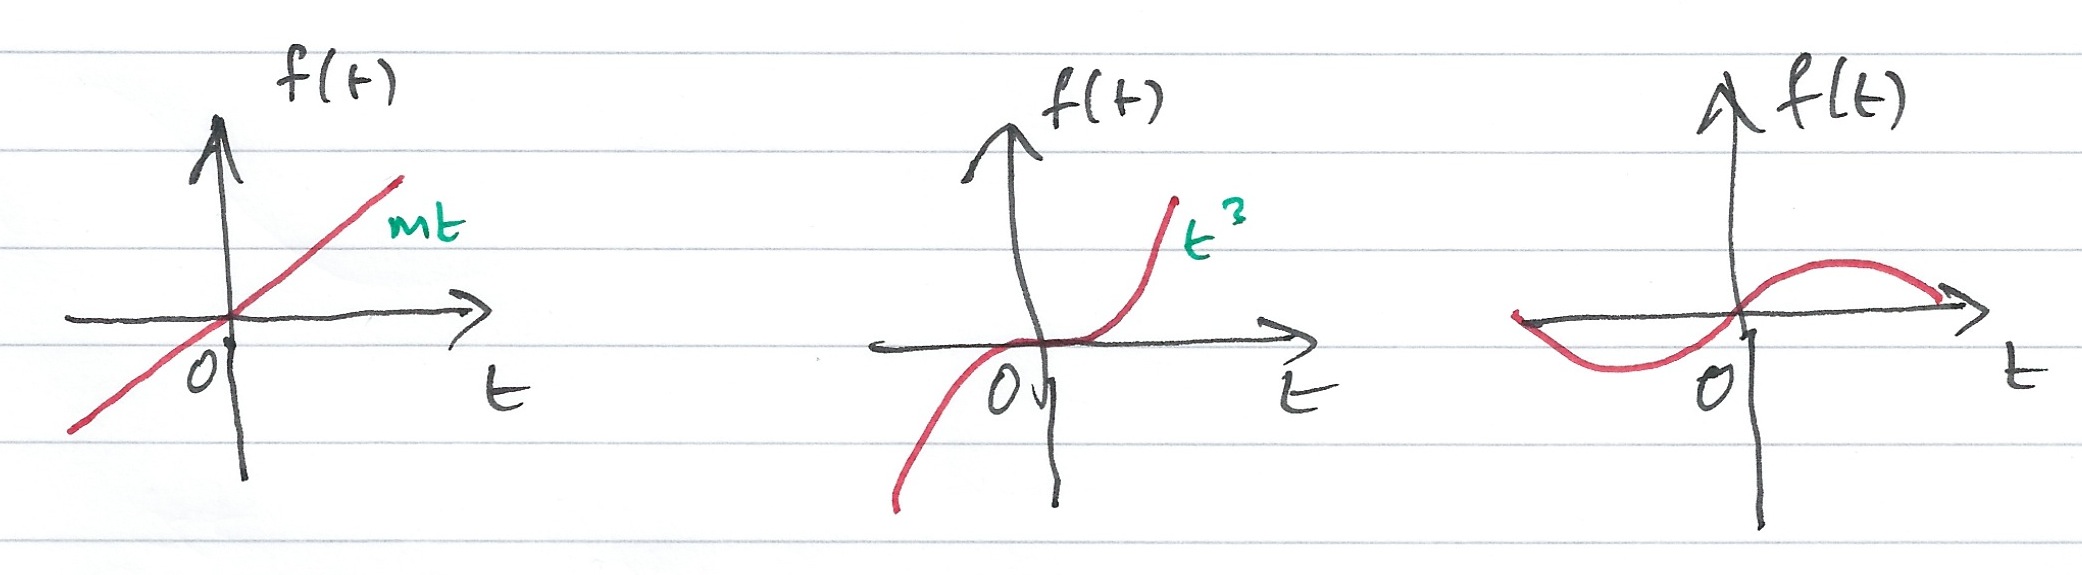 f(t)
mt
0
t
f(t)
t³
0
t
f(t)
0
t